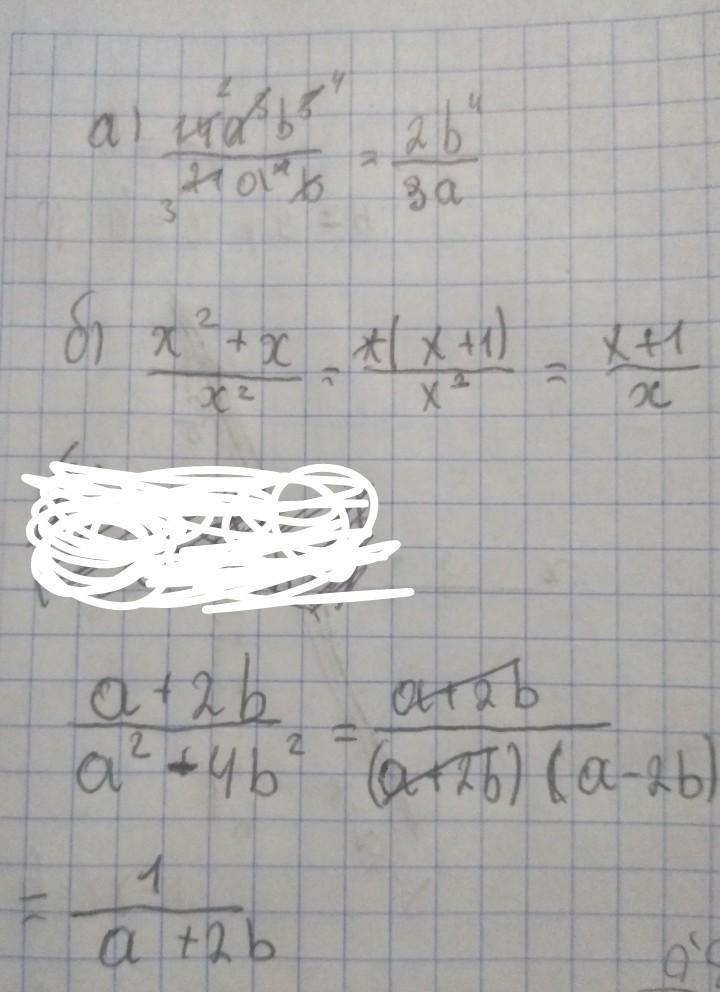 а) 14a³b⁵/21a⁴b = 2b⁴/3a
б) x² + x/x² = x(x+1)/x² = x+1/x
a+2b/a²-4b² = a+2b/(a+2b)(a-2b)
= 1/a+2b